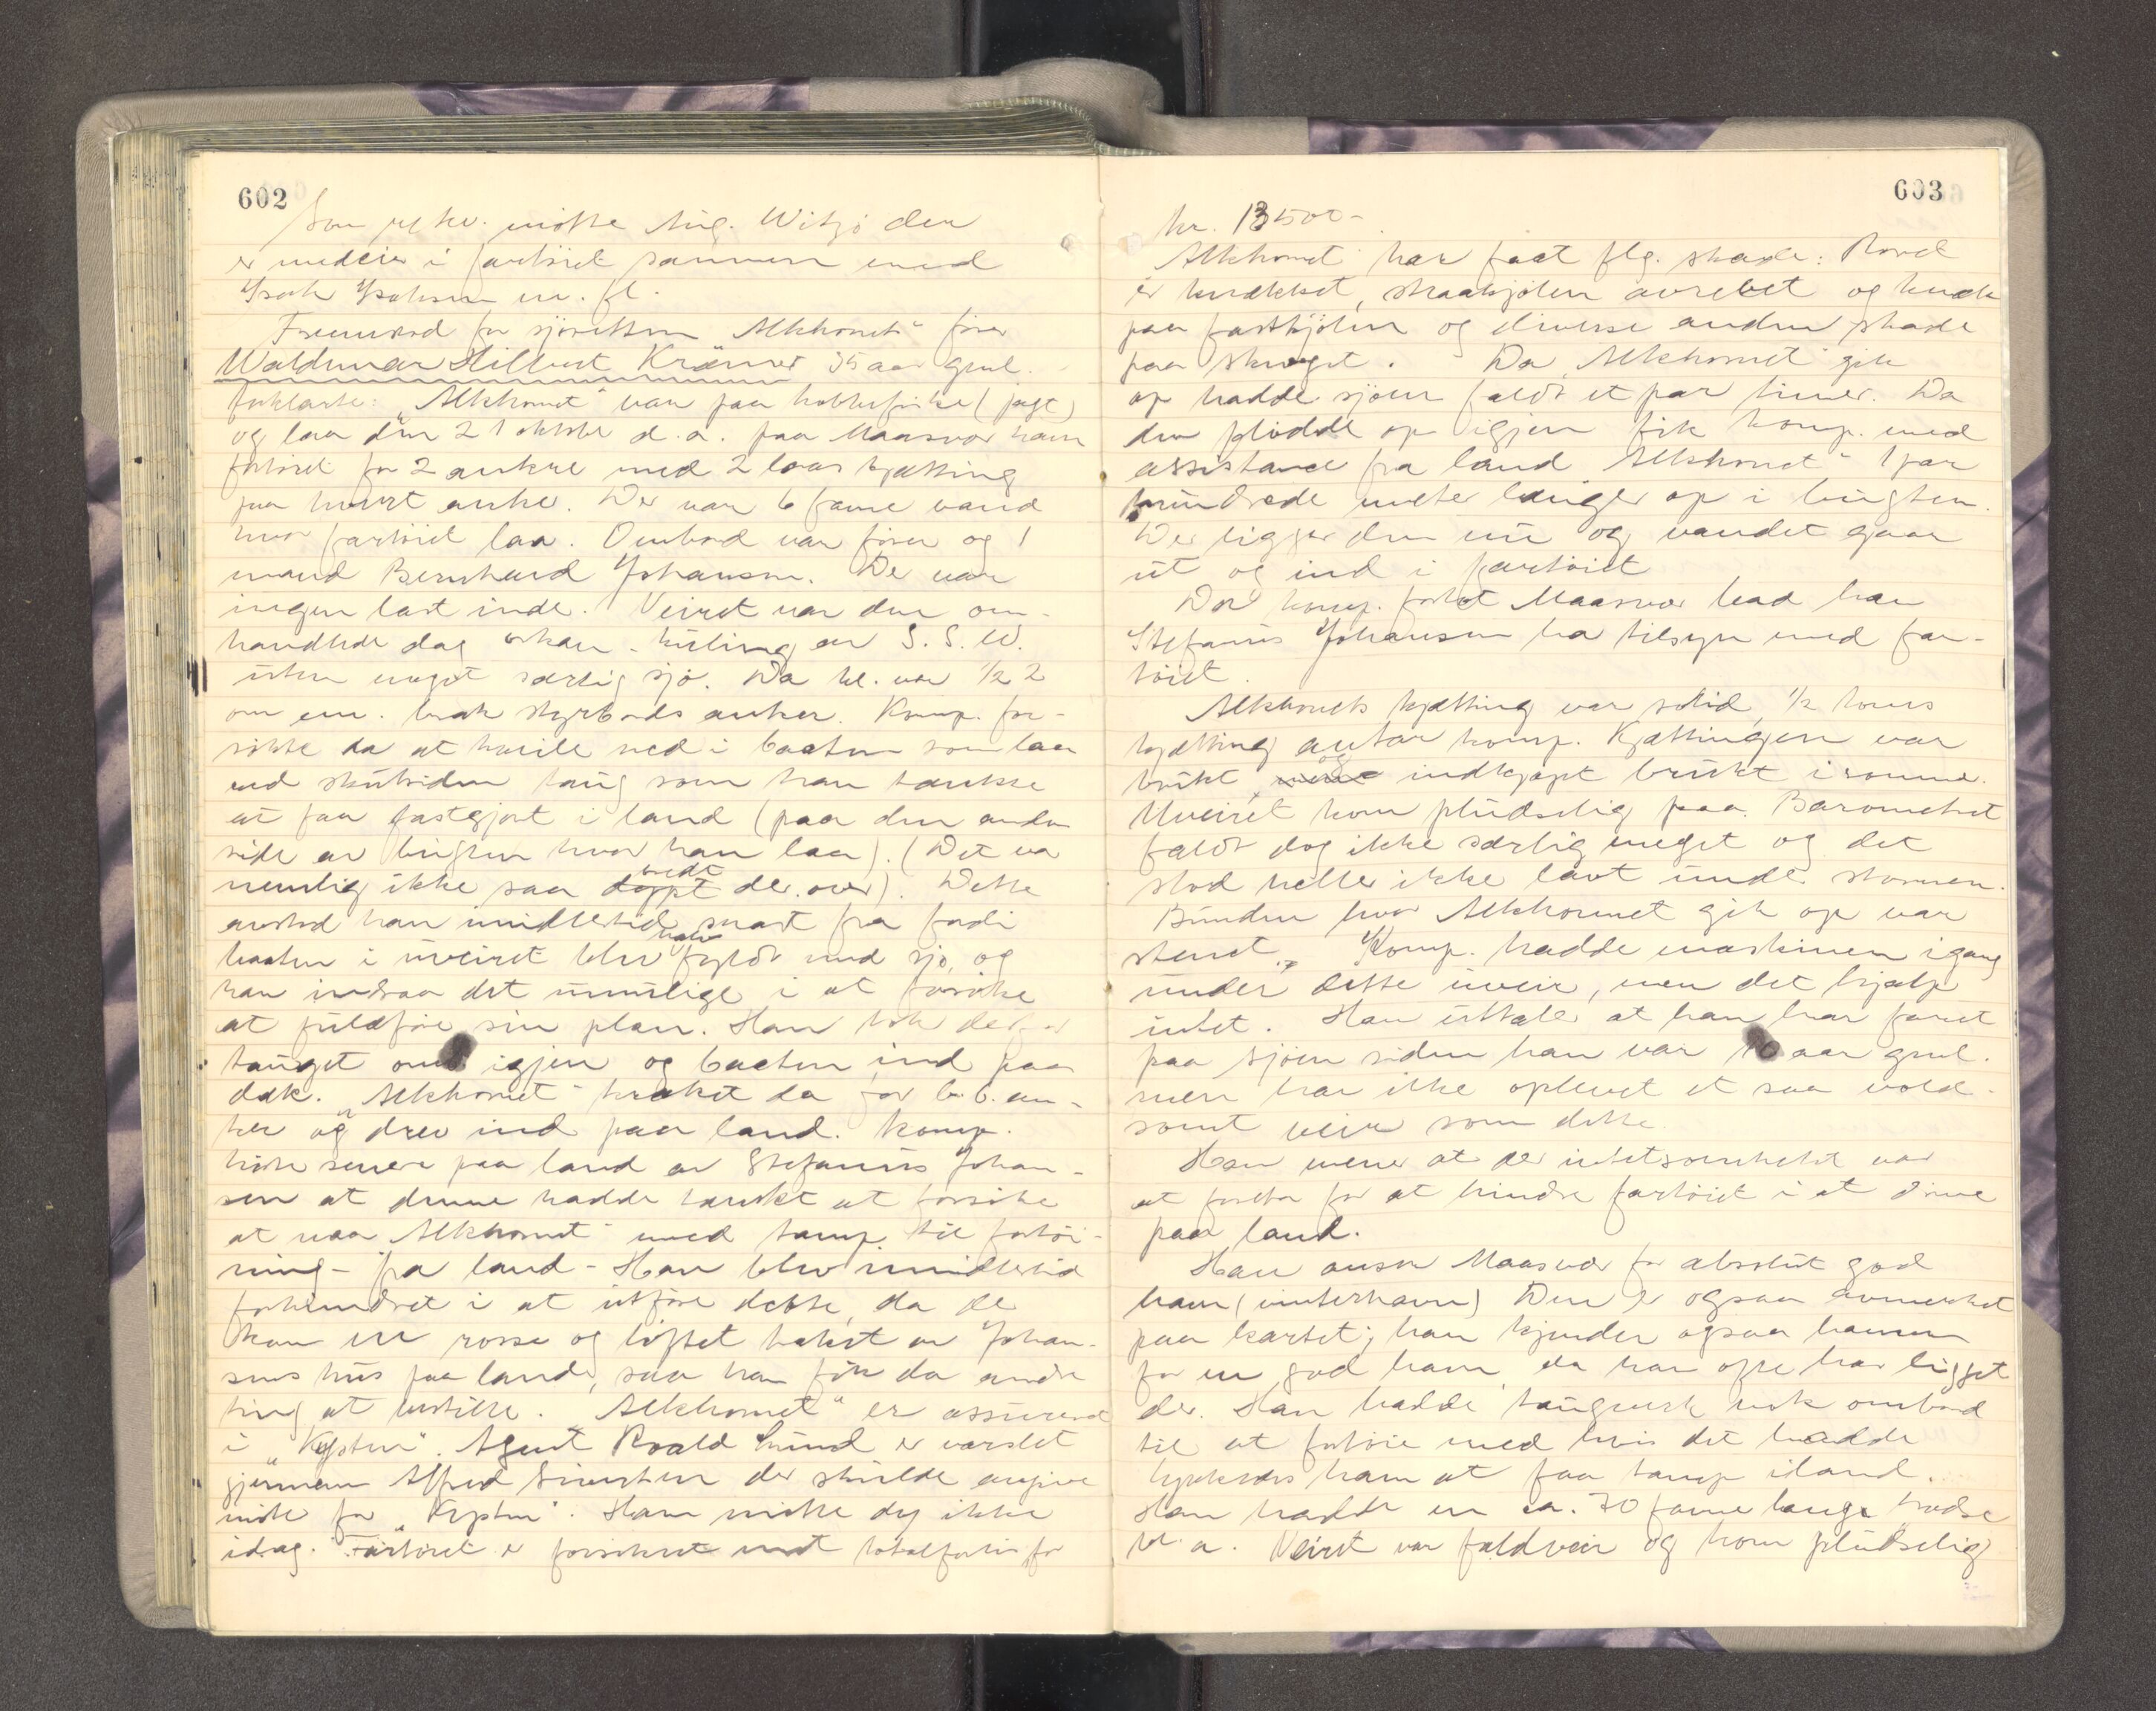 602
Som rep. møtte Aug. Witzø den
er medeier i fartöiet sammen med
Isak Isaksen m. fl.
Fremstod for sjöretten „Alkhornet"s fører
Waldemar Hilbert Kræmer 35 aar gml.
forklarte: „Alkhornet" var paa kobbefiske (fagt)
og laa den 21 oktober d.a. paa Maasvær havn
fortöiet for 2 ankre med 2 laas kjætting
paa hvert anker. Der var 6 favne vand
hvor fartöiet laa. Ombord var fører og 1
mand Bernhard Johansen. Der var
ingen last inde. Veiret var den om-
handlede dag orkan-kuling av S.S.W.
uten noget særlig sjö. Da kl. var ½ 2
om em. brak styrbords anker. Komp. for-
sökte da at kveile ned i baaten som laa
ved skutsiden taug som han tænkte
at faa fastgjort i land (paa den anden
side av bugten hvor han laa). (Det var
nemlig ikke saa bredt der over). Dette
avstod han imidlertid snart fra fordi
baaten i uveiret blev halv fyldt med sjö, og
han indsaa det umulige i at forsöke
at fuldföre sin plan. Han tok derfor
tauget ombord igjen og baaten ind paa
dæk. „Alkhornet" kraket da for b.b. an-
ker og drev ind paa land. Komp.
hörte senere paa land av Stefanus Johan-
sen at denne hadde tænkt at forsöke
at naa „Alkhornet" med tamp til fortöi-
ning - fra land - Han blev imidlertid
forhindret i at utföre dette, da der
kom en rosse og löftet taket av Johan-
sens hus paa land, saa han fik da andre
ting at bestille. „Alkhornet" er assurert
i „Kysten". Agent Roald Lund er varslet
gjennem Alfred Sivertsen der skulde angive
möte for „Kysten". Han mötte dog ikke
idag. Fartöiet er forsikret mot totalforlis for
603
kr. 13500-
Alkhornet har faat flg. skade: Roret
er knækket, straakjölen avrevet og knæk
paa fastkjölen og diverse anden skade
paa skroget. Da „Alkhornet" gik
op hadde sjöen faldt et par timer. Da
den flödde op igjen fik komp. med
assistance fra land „Alkhornet" 1 par
hundrede meter længer op i bugten.
Der ligger den nu og vandet gaar
ut og ind i fartöiet
Da komp. forlot Maasvær bad han
Stefanus Johansen ha tilsyn med far-
töiet.
Alkhornets kjætting var solid, ½ toms
kjætting antar komp. Kjættingen var
brukt, og indkjöpt brukt isommer.
Uveiret kom pludselig paa. Barometret
faldt dog ikke særlig meget og det
stod heller ikke lavt under stormen.
Bunden hvor Alkhornet gik op var
stenet. Komp. hadde maskinen igang
under dette uveir, men det hjalp
intet. Han uttaler at han har faret
paa sjöen siden han var 10 aar gml.
men har ikke oplevet et saa vold-
somt veir som dette
Han mener at der intetsomhelst var
at foreta for at hindre fartöiet i at drive
paa land.
Han anser Maasvær for absolut god
havn (vinterhavn) Den er ogsaa avmerket
paa kartet; han kjender ogsaa havnen
for en god havn, da han ofte har ligget
der. Han hadde taugverk nok ombord
til at fortöie med hvis det hadde
lykkedes ham at faa tamp iland.
Han hadde en ca. 70 favne lange trosse
bl. a. Veiret var faldveir og kom pludselig